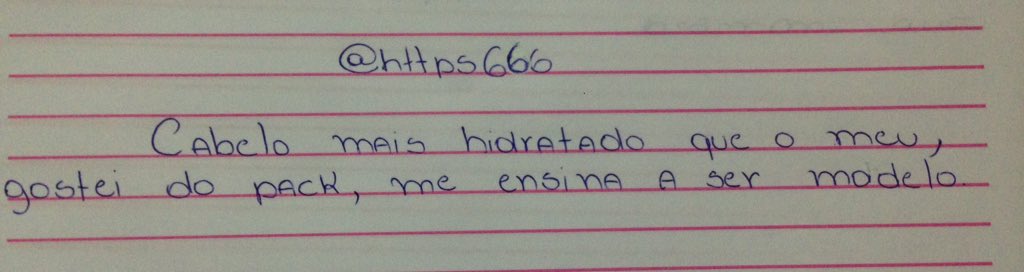 @https666
Cabelo mais hidratado que o meu,
gostei do pack, me ensina a ser modelo.